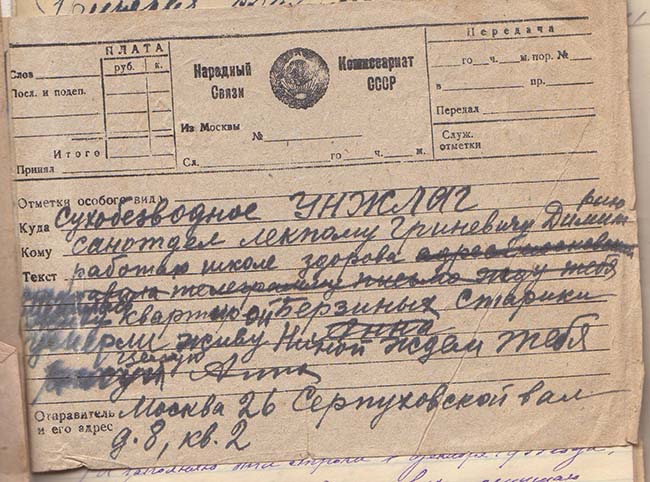 ПЛАТА
руб. к.
Слов
Посл. и подеп.
Итого
Принял
Народный Комиссариат
Связи СССР
Из Москвы
№
Сл. го ч. м.
Передача
го ч. м. пор. №
в пр.
Передал
Служ.
отметки
Отметки особого вида
Куда Сухобезводное УНЖЛАГ
Кому санотдел лекпому Гриневичу Димит
рию
Текст работаю школе здорова
телеграмму письмо жду тебя
квартирой Берзиных Старики
умерли живу Ниной ждем тебя
Анна
целую
Анна
Отправитель Москва 26 Серпуховской вал
и его адрес д. 8, кв. 2